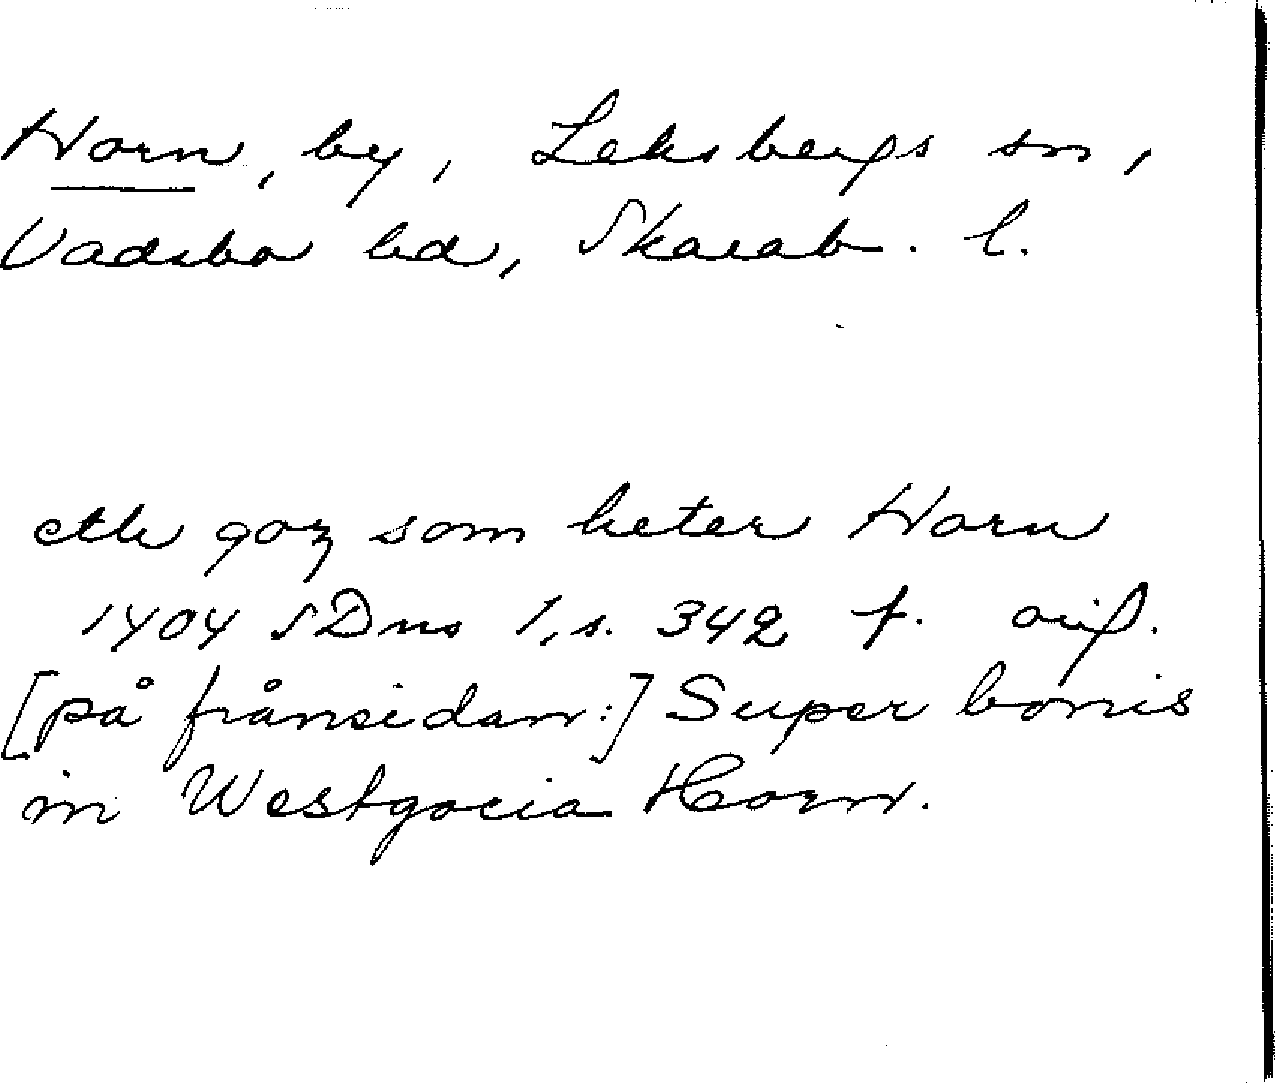 Horn, by, Leksbergs sn,
Vadsbo hd, Skarab. l.
eth goz som heter Horn
1404 SDns 1, s. 342 f. orig.
[på frånsidan:] Super bonis
in Westgocia Horn.